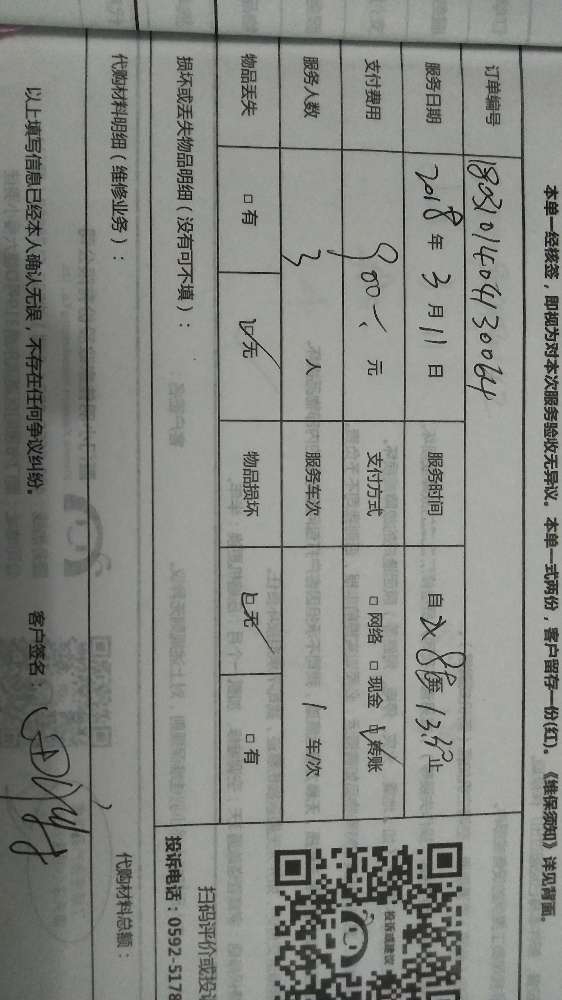 本单一经核签，即视为对本次服务验收无异议。本单一式两份，客户留存一份(红)。《维保须知》详见背面。
订单编号
服务日期 2018 年 3 月 11 日 服务时间 自 至 止
支付费用 900 元 支付方式 □网络 □现金 ☑转账
服务人数 3 人 服务车次 1 车/次
物品丢失 □有 ☑无 物品损坏 ☑无 □有
损坏或丢失物品明细（没有可不填）：
代购材料明细（维修业务）： 代购材料总额：
以上填写信息已经本人确认无误，不存在任何争议纠纷。 客户签名：
投诉或建议
扫码评价或投
投诉电话：0592-5178